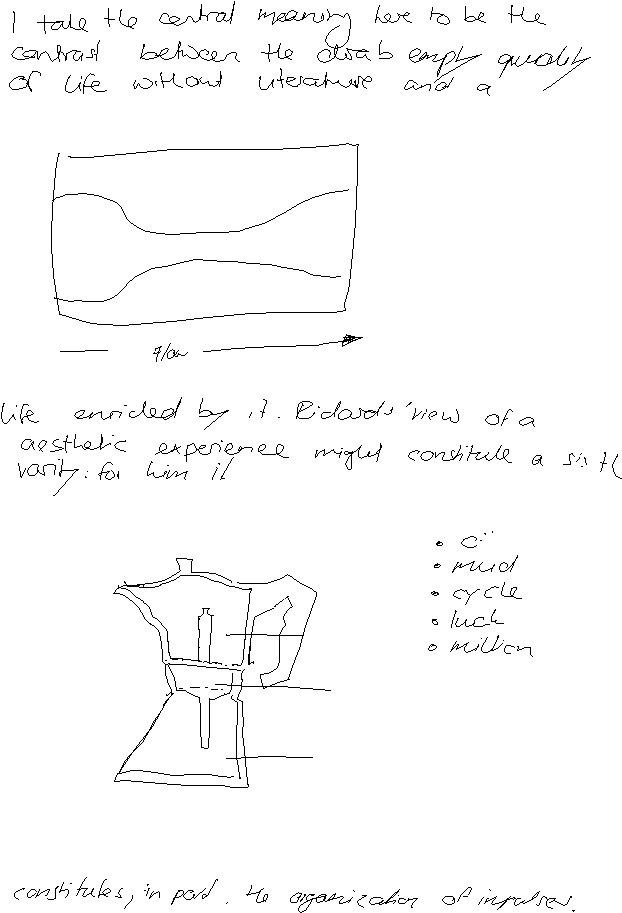 I take the central meaning here to be the
contrast between the drab empty quality
of life without literature and a
flow
life enriched by it. Richards' view of a
aesthetic experience might constitute a sixth
varity: for him it
• oil
• mud
• cycle
• luck
• million
constitutes, in part, the organization of impulses.